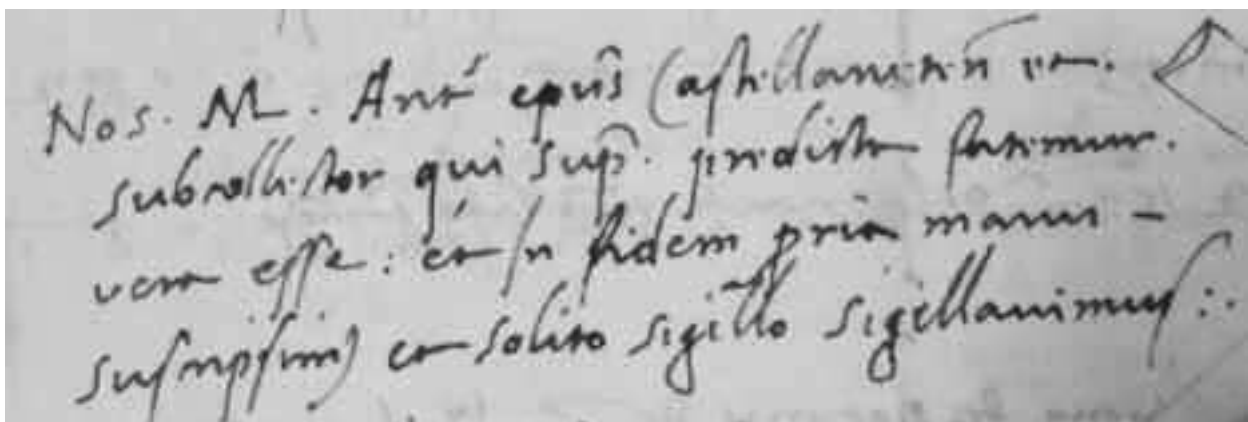 Nos. M. Ant' ep̃us Castellaneteñ et.
subcollector qui sup̃. predicta fatemur.
vera esse: et in fidem pria manu -
suscripsim) et solito sigillo sigillauimus:.